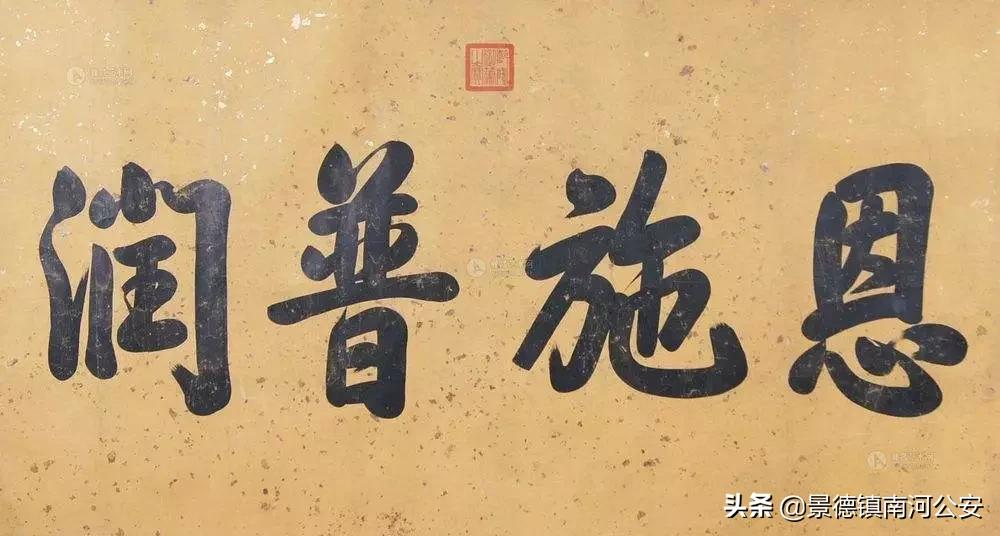 恩施普润
头条 @景德镇南河公安